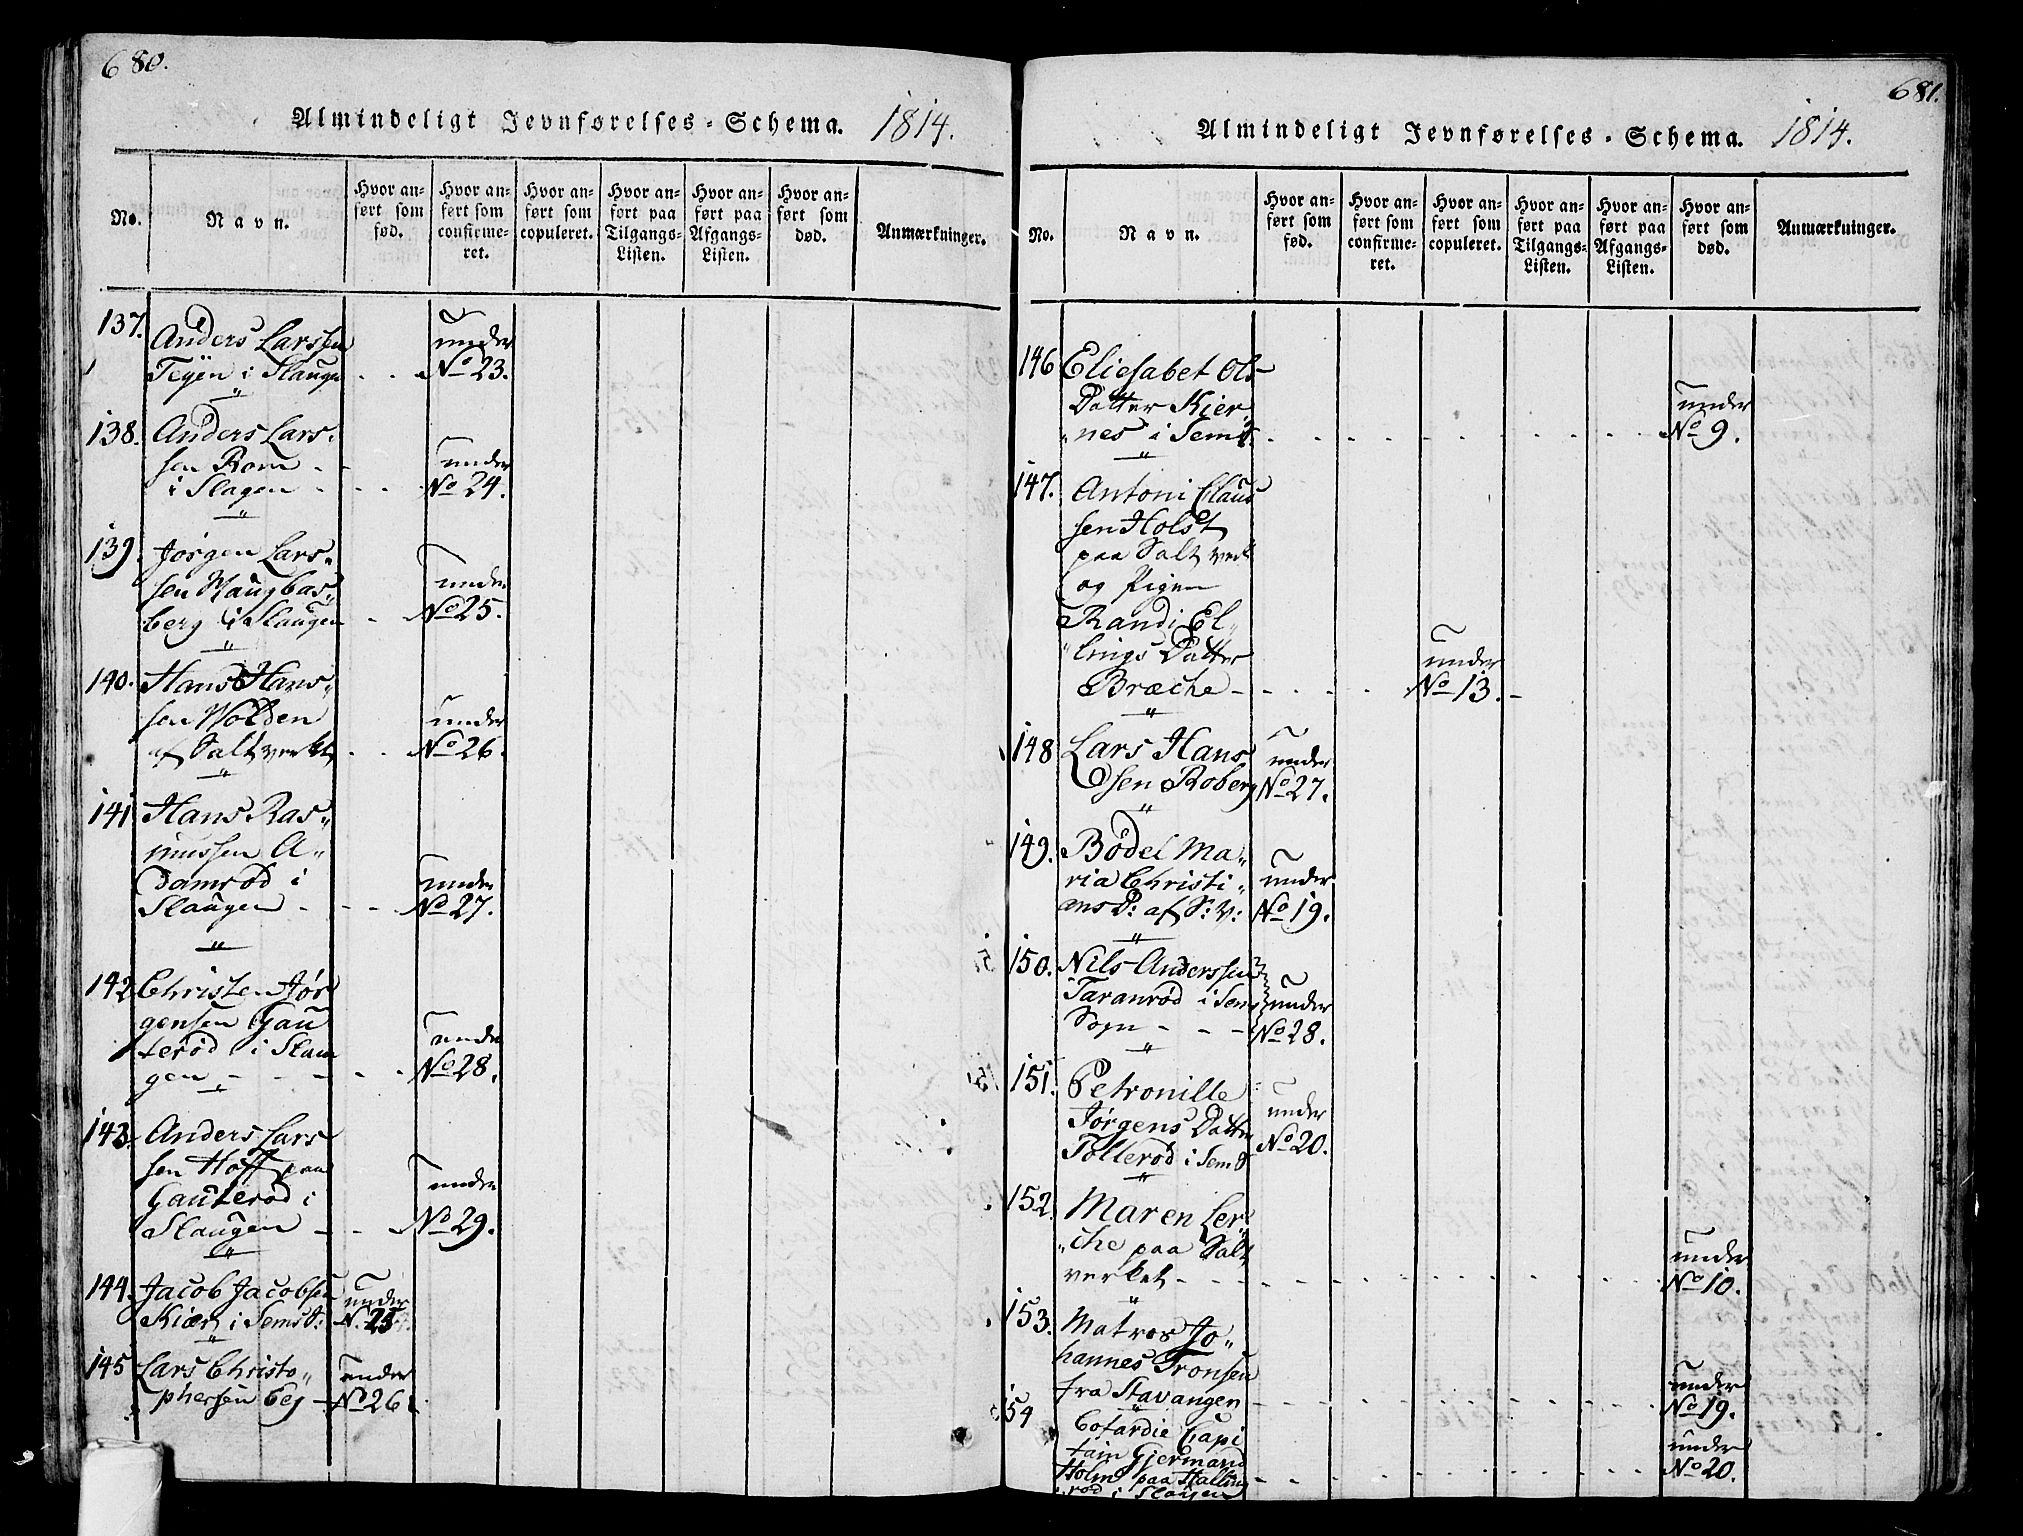 680.
Almindeligt Jevnførelses-Schema. 1814.
No.
Navn.
Hvor an-
ført som
fød.
Hvor an-
ført som
confirme-
ret.
Hvor an-
ført som
copuleret.
Hvor an-
ført paa
Tilgangs-
Listen.
Hvor an-
ført paa
Afgangs-
Listen.
Hvor an-
ført som
død.
Anmærkninger.
137. Anders Larssen under
Teÿen i Slaugen - - No 23.
138. Anders Lars-
sen Rom - - under
i Slagen - - - No 24.
139. Jørgen Lars-
sen Haugbas- under
berg i Slaugen - No 25.
140. Hans Hans-
sen Wolden under
af Saltverket - - No 26.
141 Hans Ras-
mussen A-
damrød i under
Slaugen - - - No 27.
142 Christen Jør
gensen Gau
terød i Slau under
gen - - - - No 28.
143. Anders Lars
sen Hoff paa
Gauterød i under
Slaugen - - No 29.
144. Jacob Jacobsen under
Kiær i Sems S: N. 25.
145 Lars Christo- under
phersen Eeg - No 26.
681.
Almindeligt Jevnførelses-Schema. 1814.
No.
Navn.
Hvor an-
ført som
fød.
Hvor an-
ført som
confirme-
ret.
Hvor an-
ført som
copuleret.
Hvor an-
ført paa
Tilgangs-
Listen.
Hvor an-
ført paa
Afgangs-
Listen.
Hvor an-
ført som
død.
Anmærkninger.
146 Eliesabet Ols-
Datter Kier- under
nes i Sems - - - - No 9.
147. Antoni Claus
sen Holst
paa Saltverk
og Pigen
Randi El-
lings Datter under
Bræche - - - - No 13. -
148 Lars Hans under
sen Roberg No 27.
149. Bodel Ma-
ria Christi- under
ans D: af S: V: No 19.
150. Nils Anderssen
Taranrød i Sems under
Sogn - - - No 28.
151. Petronille
Jørgens Datter under
Tollerød i Sem S No 20.
152. Maren Ler-
che paa Salt under
verket - - - - No 10.
153. Matros Jo-
hannes Tronsen under
fra Stavangen - - - No 19.
154 Cofardie Capi
tain Gjermand under
Holm paa Halling - - - No 20.
rød i Slaugen